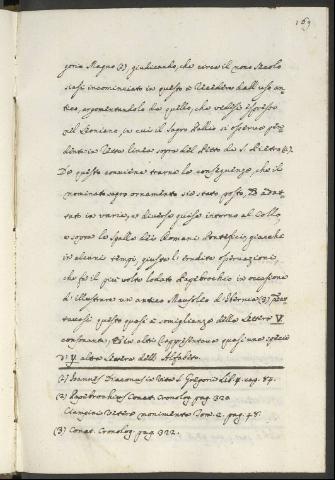 169
goria Magno (1), giudicando, che circa il nono Secolo
siasi incominciato in questo a recedere dall' uso an-
tico, argomentandolo da quello, che vedesi espresso
nel Leoniano, in cui il Sagro Pallio si osserva pen-
dente in retta linea sopra del Petto di S. Pietro (2).
Da questo conviene trarne la conseguenza, che il
nominato sagro ornamento sia stato posto, ed adat-
tato in varie, e diverse guise intorno al Collo,
e sopra le Spalle dei Romani Pontefici, giacchè
in alcuni tempi, giusta l'erudite osservazioni,
che fa il più volte lodato Papebrochio in occasione
d'illustrare un antico Mausoleo d'Isernia (3)
tavasi questo quasi a somiglianza della Lettera V
consonante, ed in altri rappresentava quasi una specie
di y altra Lettera dell' Alfabeto.
(1) Ioannes Diaconus in Vita S. Gregorii lib. 4. cap. 84.
(2) Papebrochius Conat. Cronolog. pag. 320
Ciampini Vetera monimenta Tom. 2. pag. 48.
(3) Conat. Cronolog. pag. 322.